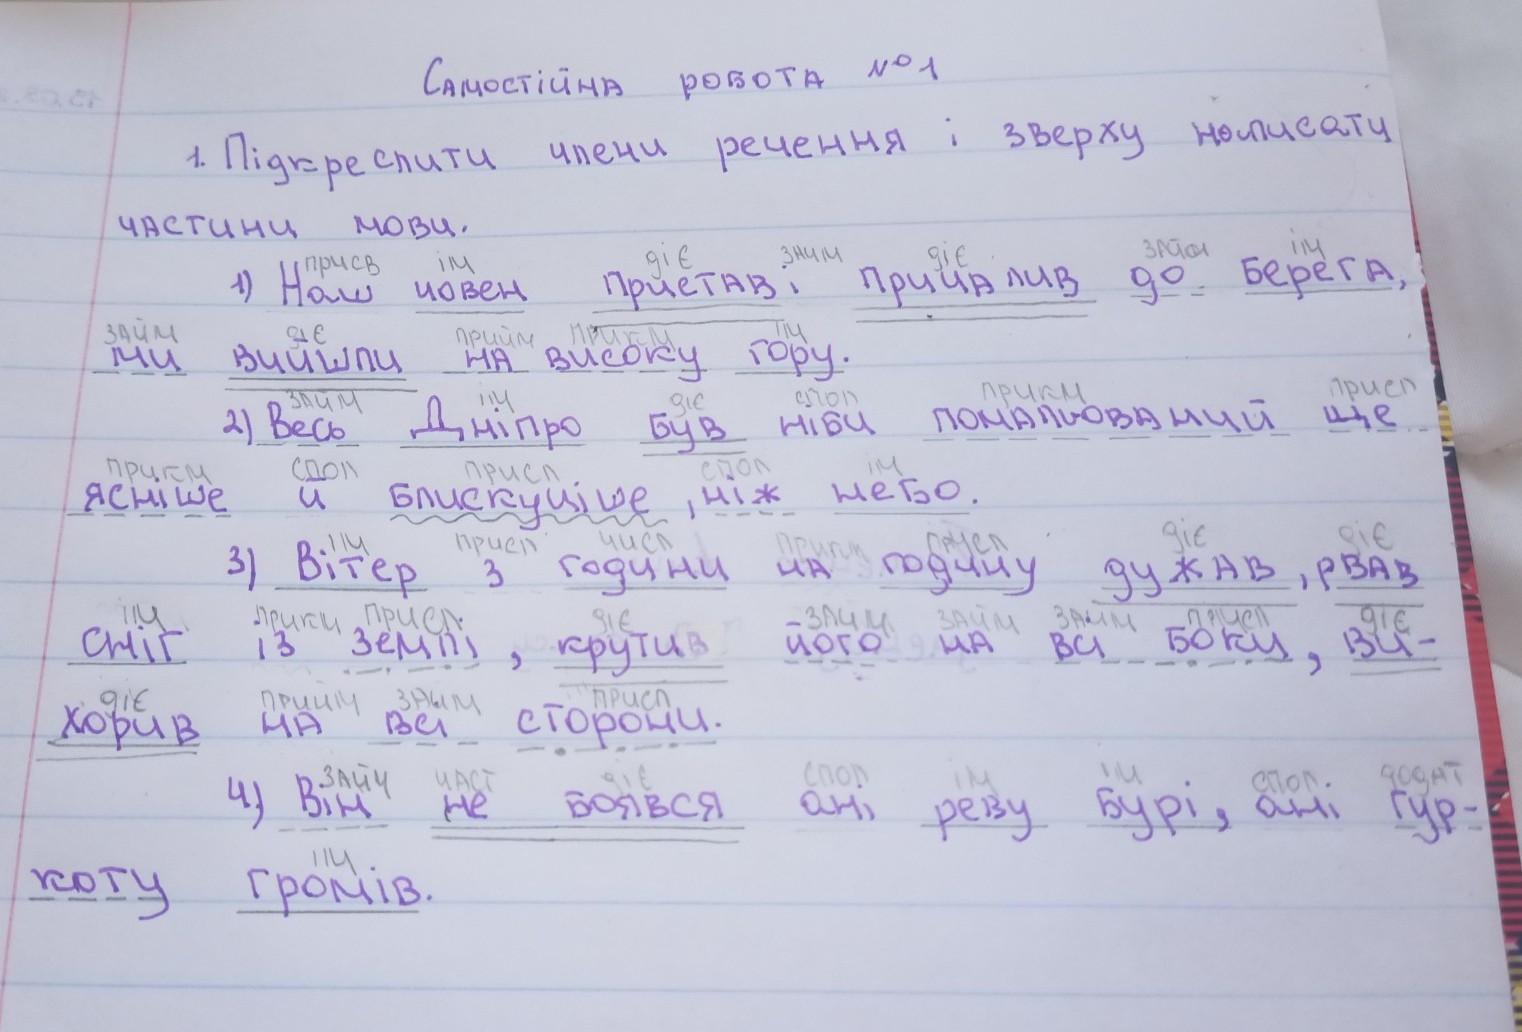 Самостійна робота №1
1. Підкреслити члени речення і зверху написати
частини мови.
присв ім діє займ діє займ ім
1) Наш човен пристав і причалив до берега,
займ діє прийм прикм ім
ми вийшли на високу гору.
займ ім діє спол прикм присл
2) Весь Дніпро був ніби помальований ще
прикм спол присл спол ім
ясніше й блискучіше, ніж небо.
ім присл числ прикм присл діє діє
3) Вітер з години на годину дужав, рвав
ім прикм присл діє займ займ займ присл діє
сніг із землі, крутив його на всі боки, ви-
діє прийм займ присл
хорив на всі сторони.
займ част діє спол ім ім спол додат
4) Він не боявся ані реву бурі, ані гур-
ім
коту громів.